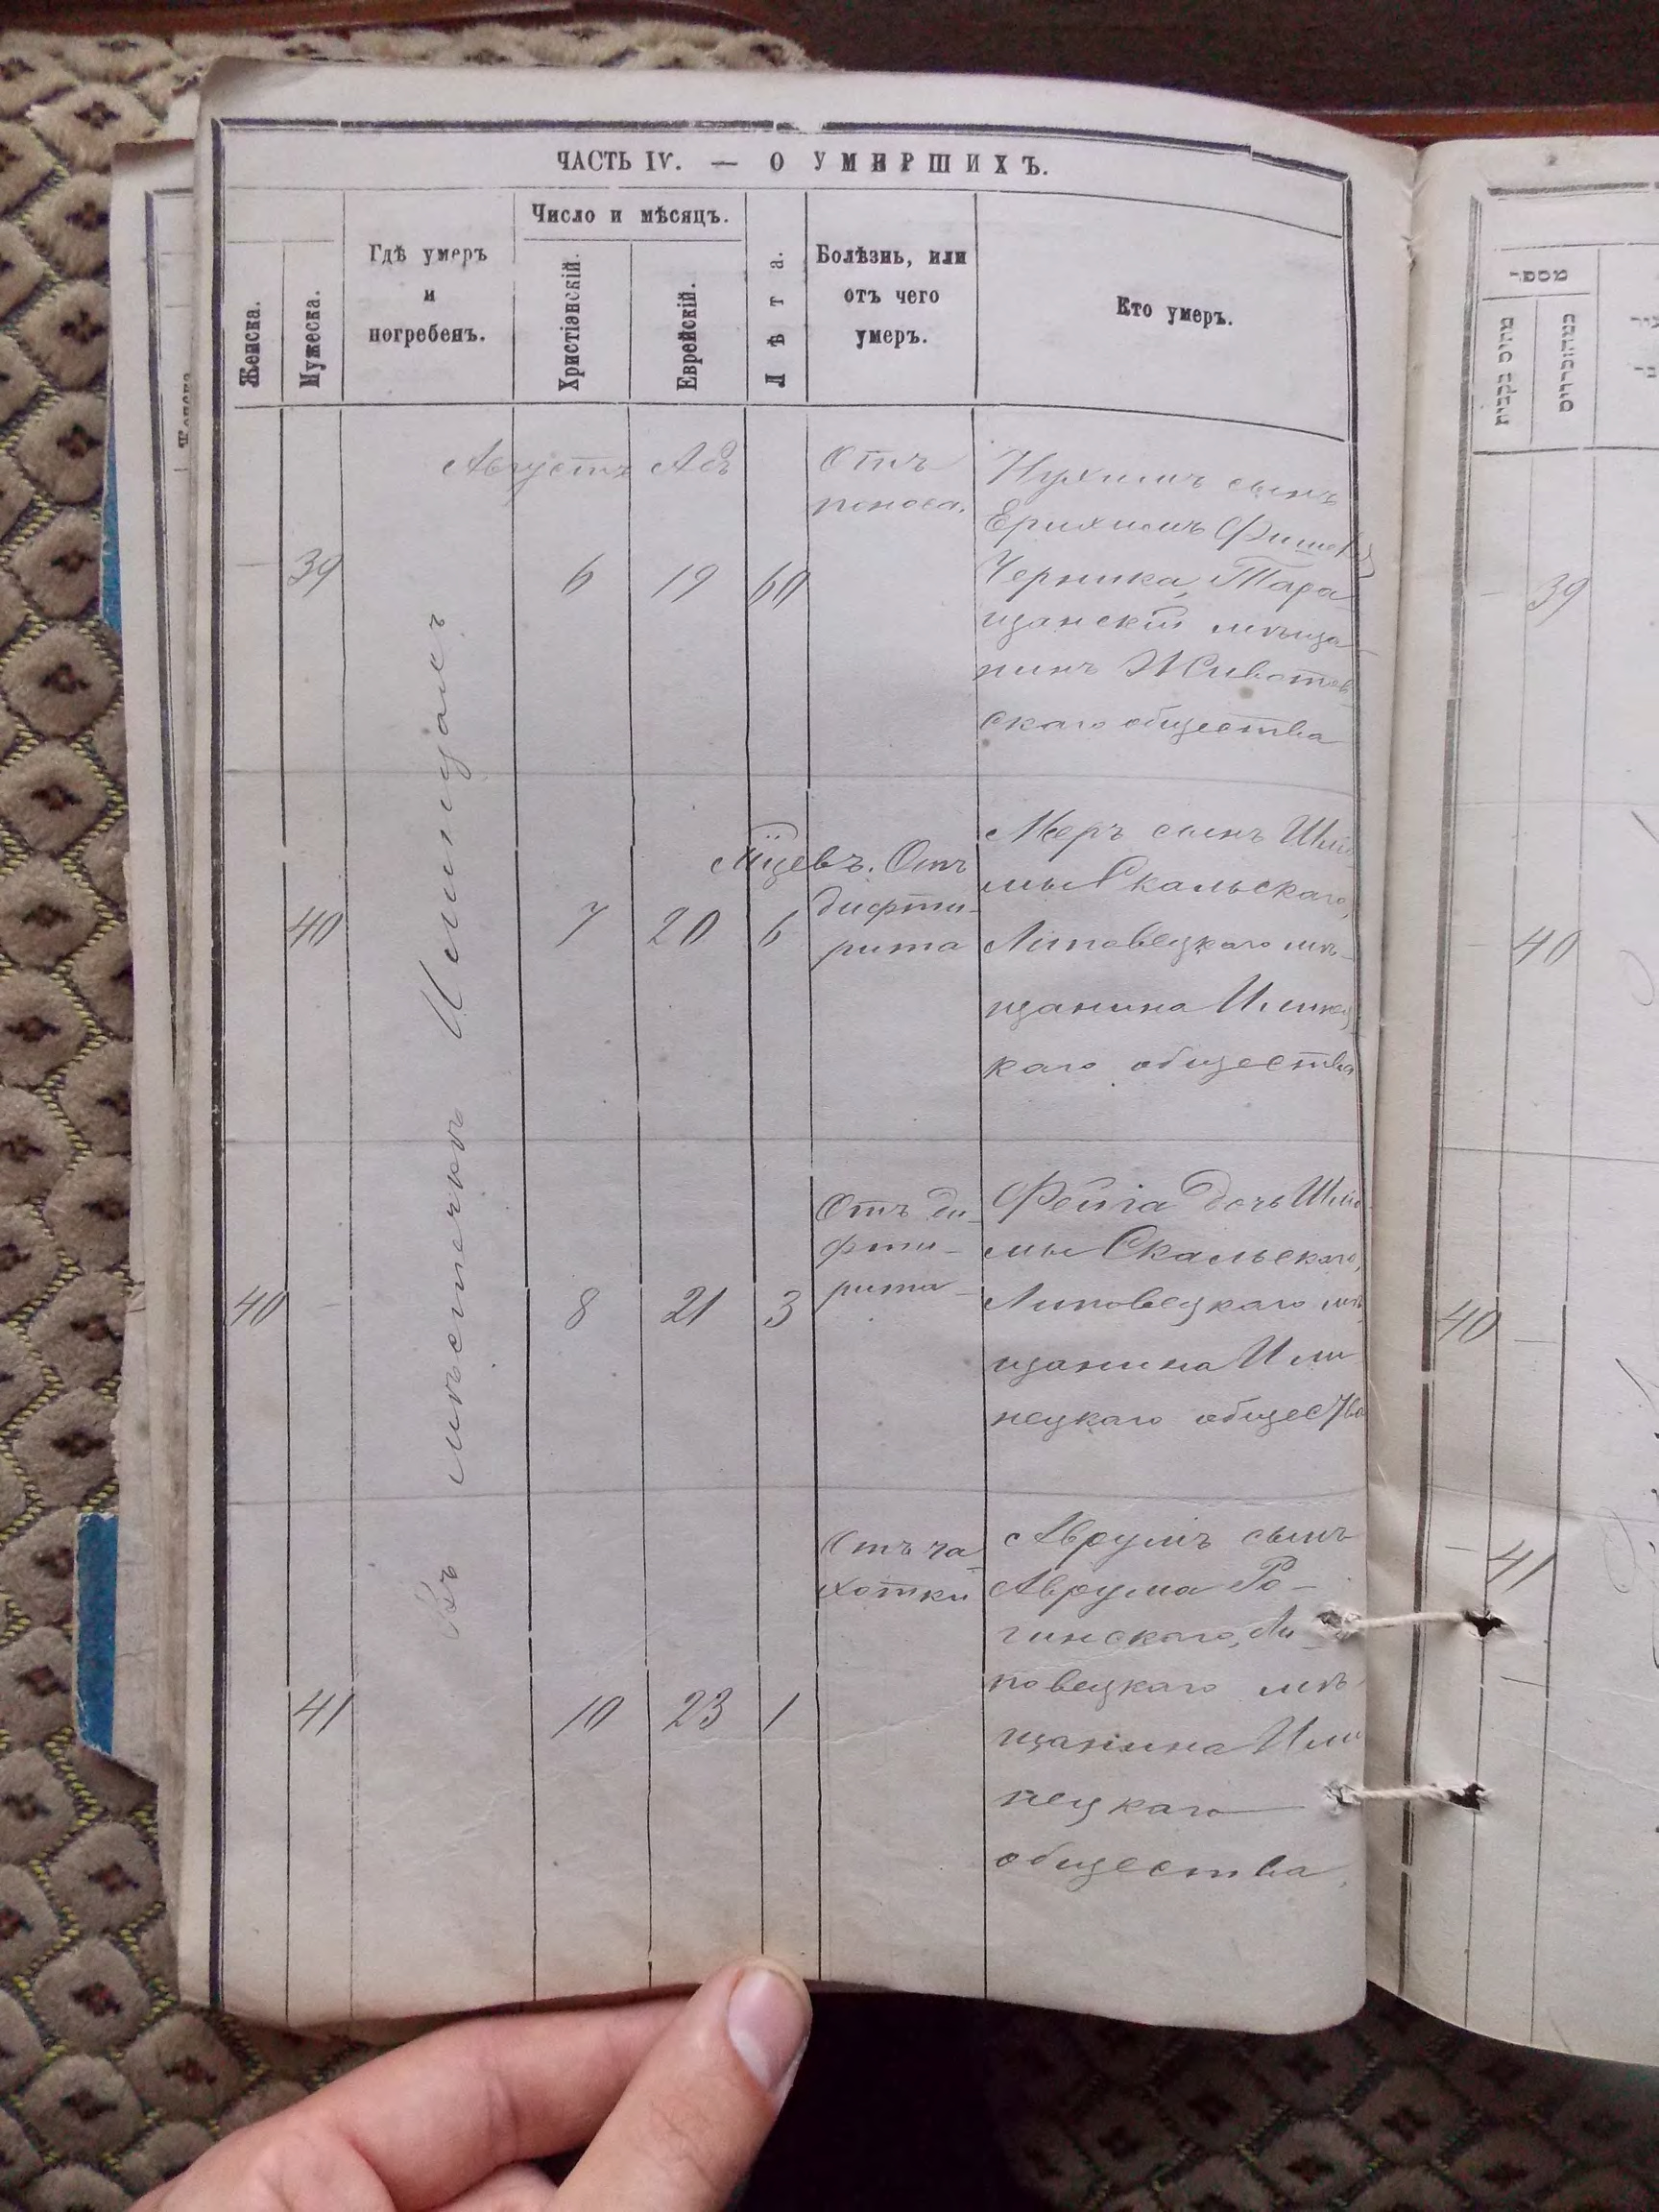 ЧАСТЬ IV. — О УМЕРШИХЪ.
Женска.
Мужеска.
Гдѣ умеръ
и
погребенъ.
Число и мѣсяцъ.
Христіанскій.
Еврейскій.
Лѣта.
Болѣзнь, или
отъ чего
умеръ.
Кто умеръ.
Въ мѣстечкѣ Илинцахъ
Августъ Абъ
39
6 19 60
Отъ
поноса.
Нухимъ сынъ
Ерихимъ
Черника, Тара-
щанскій мѣща-
нинъ Животов
скаго общества
40
7 20 6
Мѣсяцевъ. Отъ
дифти-
рита
Меръ сынъ Шлио
мы Скальскаго,
Липовецкаго мѣ-
щанина Илинец
каго общества
40 –
8 21 3
Отъ ди-
фти-
рита
Фейга дочь Шлио
мы Скальскаго,
Липовецкаго мѣ
щанина Или
нецкаго общества
41
10 23 1
Отъ ча
хотки
Аврумъ сынъ
Аврума Ро-
гинскаго, Ли-
повецкаго мѣ-
щанина Или
нецкаго
общества,
39
40
40
41